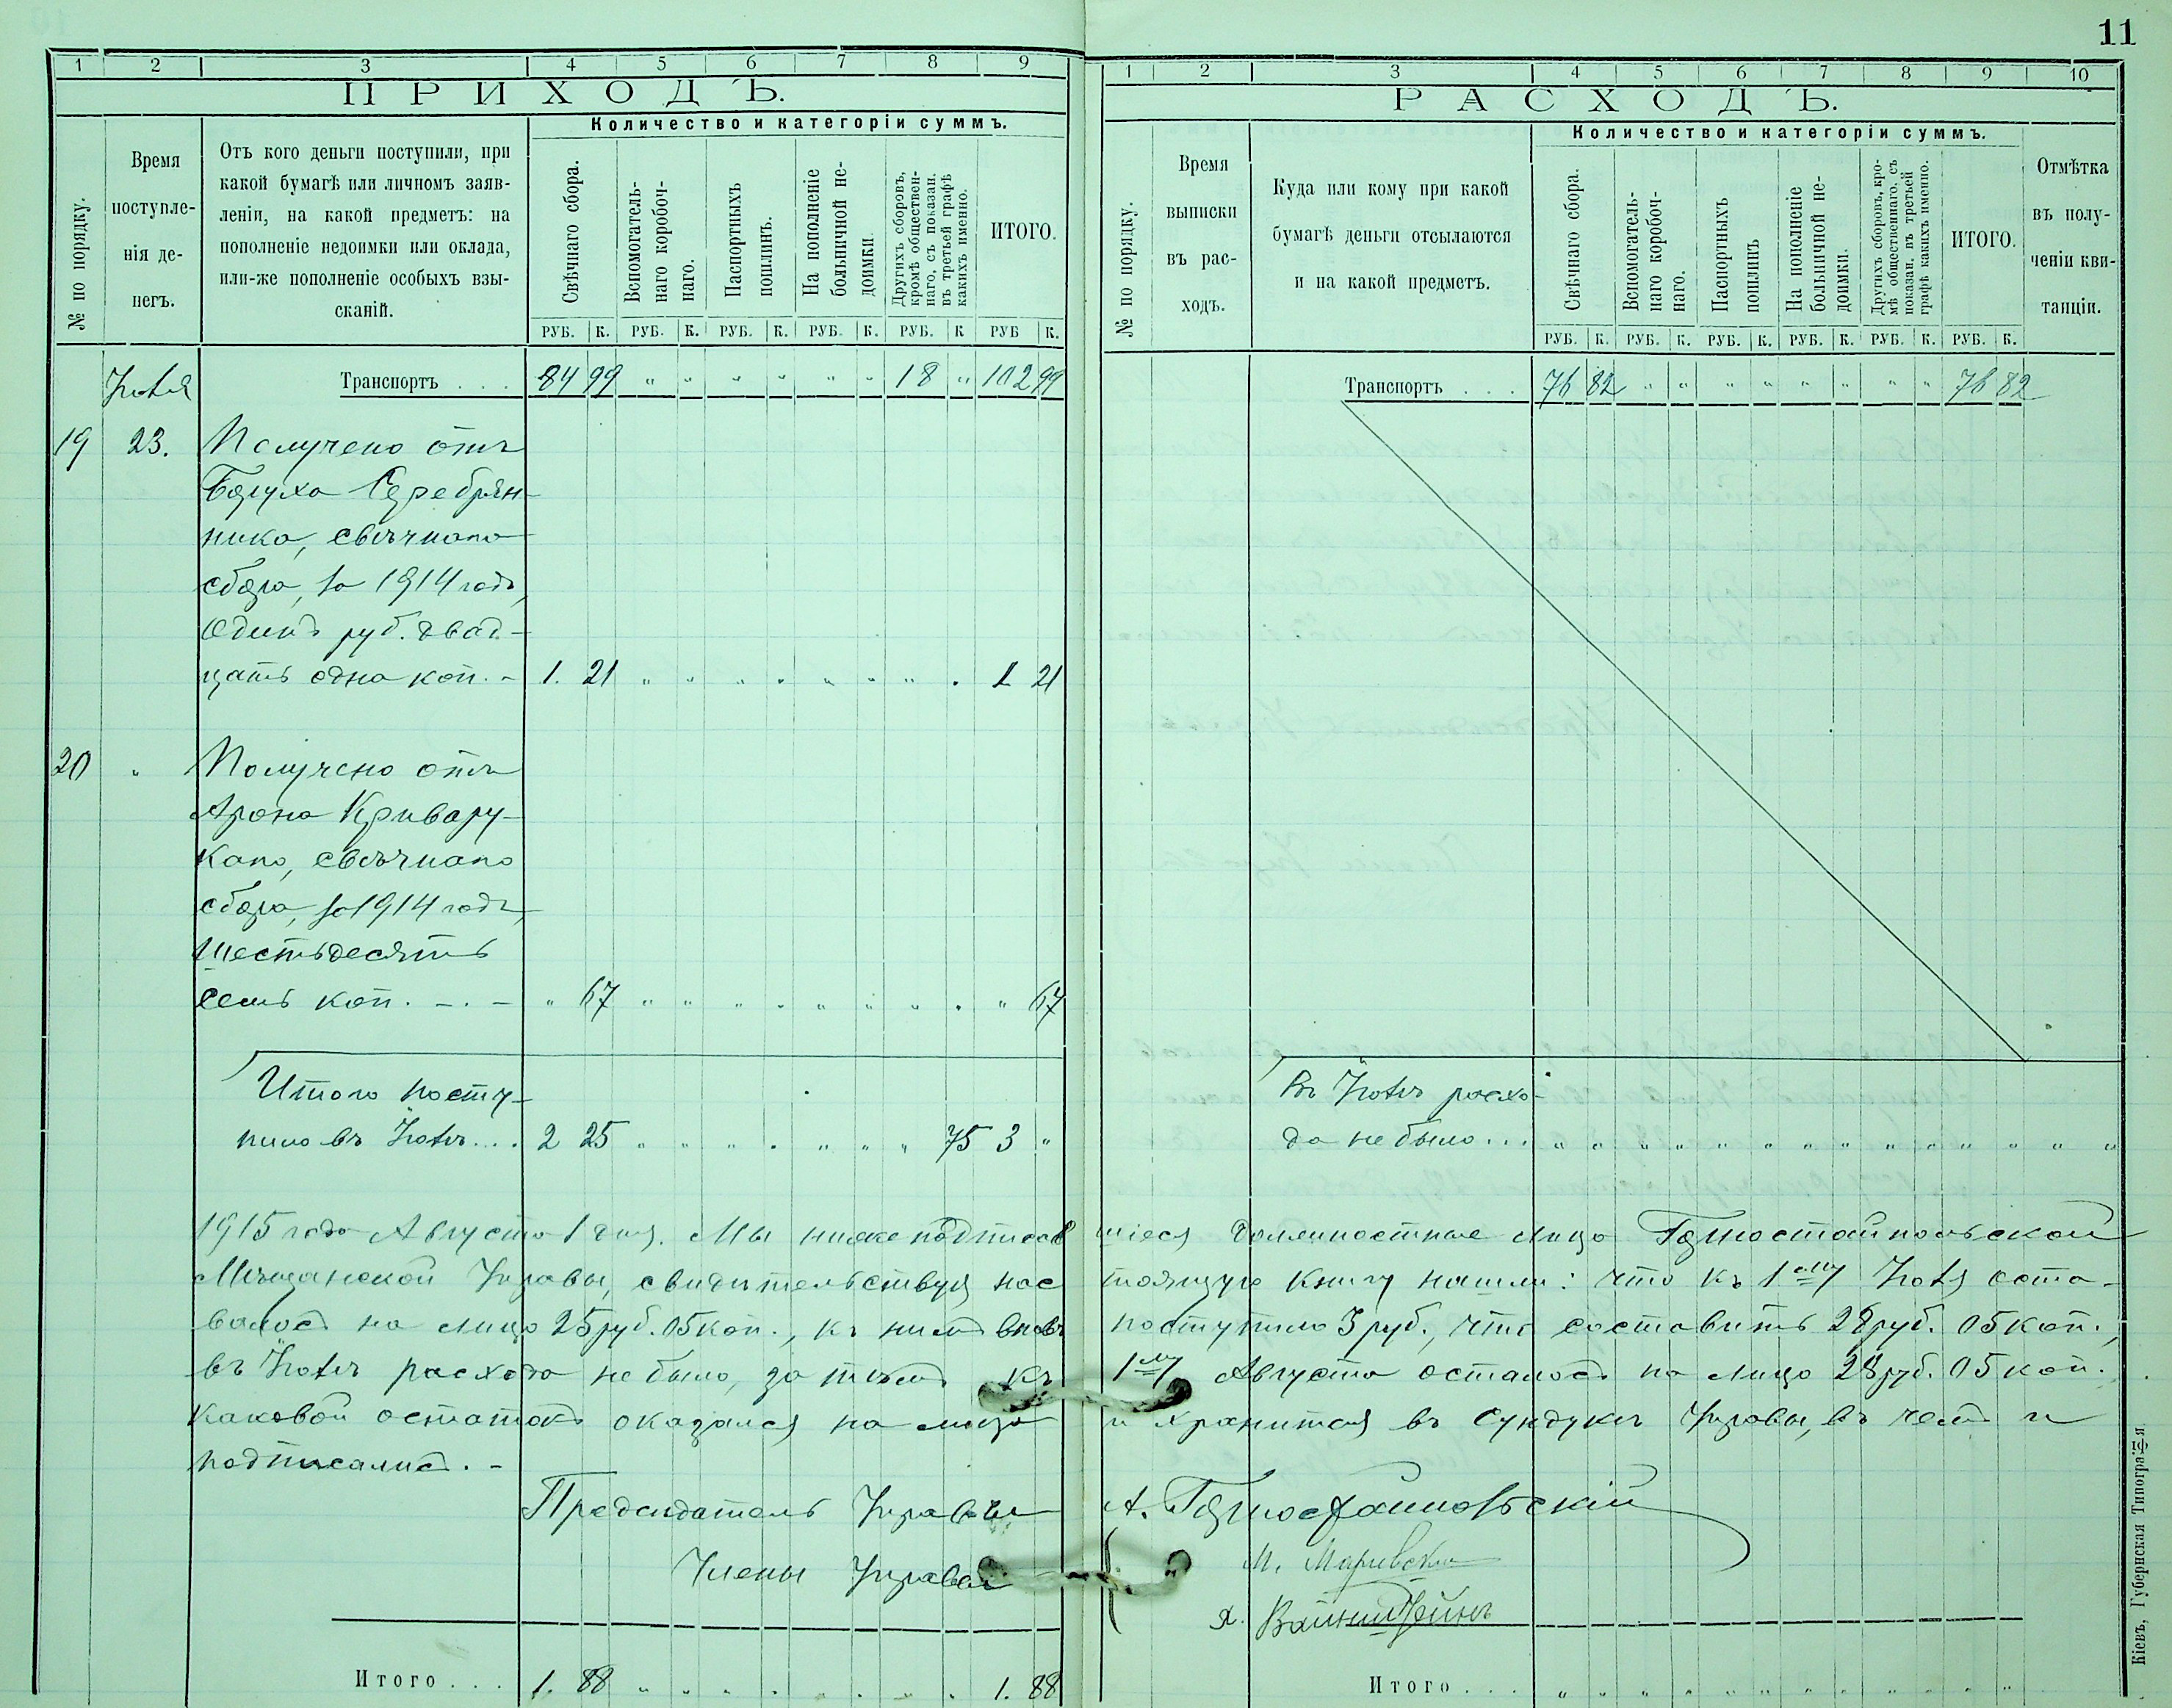 11
1 2 3 4 5 6 7 8 9
ПРИХОДЪ.
№ по порядку.
Время поступле-нія де-негъ.
Отъ кого деньги поступили, при
какой бумагѣ или личномъ заяв-
леніи, на какой предметъ: на
пополненіе недоимки или оклада,
или-же пополненіе особыхъ взы-
сканій.
Количество и категоріи суммъ.
Свѣчнаго сбора.
Вспомогатель-
наго коробоч-
наго.
Паспортныхъ
пошлинъ.
На пополненіе
больничной не-
доимки.
Другихъ сборовъ,
кромѣ обществен-
наго, съ показан.
въ третьей графѣ
какихъ именно.
ИТОГО.
РУБ. К. РУБ. К. РУБ К. РУБ. К. РУБ. К РУБ К.
Іюля Транспортъ . . . 84 99 " " " " " " 18 " 102 99
19 23. Получено отъ
Боруха Серебрян-
ника, свѣчнаго
сбора, за 1914 годъ,
Одинъ руб. двад-
цать одна коп. - 1. 21 " " " " " " " . 1 21
20 " Получено отъ
Арона Кривару-
каго, свѣчнаго
сбора, за 1914 годъ,
Шестьдесятъ
семь коп. - . - " 67 " " " " " " " . " 67
Итого посту-
пило въ Іюлѣ... 2 25 " " " . " " " 75 3 "
1 2 3 4 5 6 7 8 9 10
РАСХОДЪ.
№ по порядку.
Время
выписки
въ рас-
ходъ.
Куда или кому при какой
бумагѣ деньги отсылаются
и на какой предметъ.
Количество и категоріи суммъ.
Свѣчнаго сбора.
Вспомогатель-
наго коробоч-
наго.
Паспортныхъ
пошлинъ
На пополненіе
больничной не-
доимки.
Другихъ сборовъ, кро-
мѣ общественнаго, съ
показан. въ третьей
графѣ какихъ именно.
ИТОГО.
Отмѣтка
въ полу-
ченіи кви-
танціи.
РУБ. К. РУБ. К. РУБ. К. РУБ. К. РУБ. К. РУБ. К.
Транспортъ . . . 76 82 " " " " " " " " 76 82
Въ Іюлѣ расхо-
да не было... " " " " " " " " " " " " "
1915 года Августа 1 дня. Мы нижеподписавшіеся должностные лица Горностайпольской
Мѣщанской Управы, свидѣтельствуя настоящую книгу нашли: что къ 1му Іюля оста-
валось на лицо 25 руб. 05 коп., къ нимъ вновь поступило 3 руб., что составитъ 28 руб. 05 коп.,
въ Іюлѣ расхода не было, за тѣмъ къ 1му Августа осталось на лицо 28 руб. 05 коп.
каковой остатокъ оказался на лицо и хранится въ сундукѣ Управы, въ чемъ и
подписались. -
Предсѣдатель Управы А. Горностайпольскій
Члены Управы
Я. Вайнштейнъ
Итого . . . 1. 88 " " " " " " " " 1. 88
Итого . . . " " " " " " " " " " " "
Кіевъ, Губернская Типографія